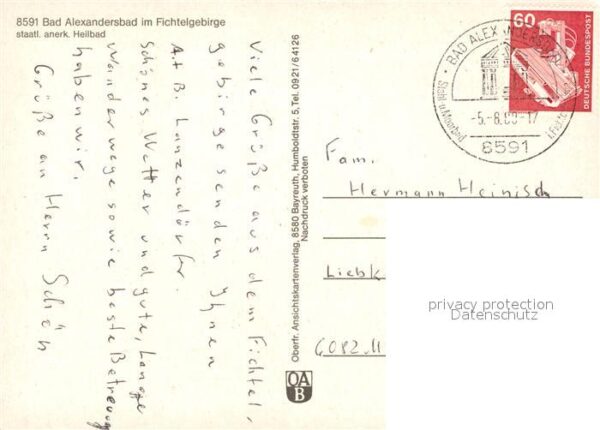 8591 Bad Alexandersbad im Fichtelgebirge
staatl. anerk. Heilbad
Viele Grüße aus dem Fichtel,
gebirge senden Ihnen
A.+B. Lanzendörfer.
Schönes Wetter und gute, lange
Wanderwege sowie beste Betreuung
haben wir.
Grüße an Herrn Schön
Oberfr. Ansichtskartenverlag, 8580 Bayreuth, Humboldtstr. 5, Tel. 0921/64126
Nachdruck verboten
OA
B
BAD ALEXANDERSBAD
Stahl u. Moorbad
-5.-8.80-17
8591
60
DEUTSCHE BUNDESPOST
Fam.
Hermann Heinisch
Liebk
6082 M
privacy protection
Datenschutz